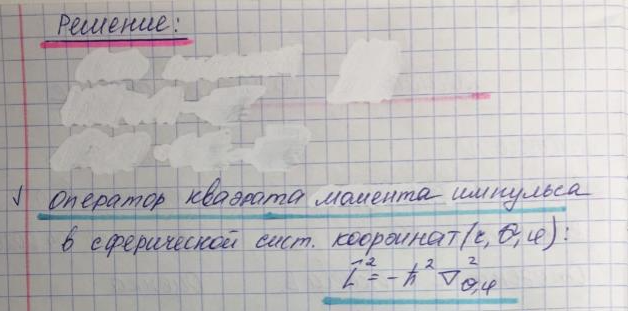 Решение:
√ оператор квадрата момента импульса
в сферической сист. координат (r, θ, φ):
L̂² = -ħ² ∇²θ,φ